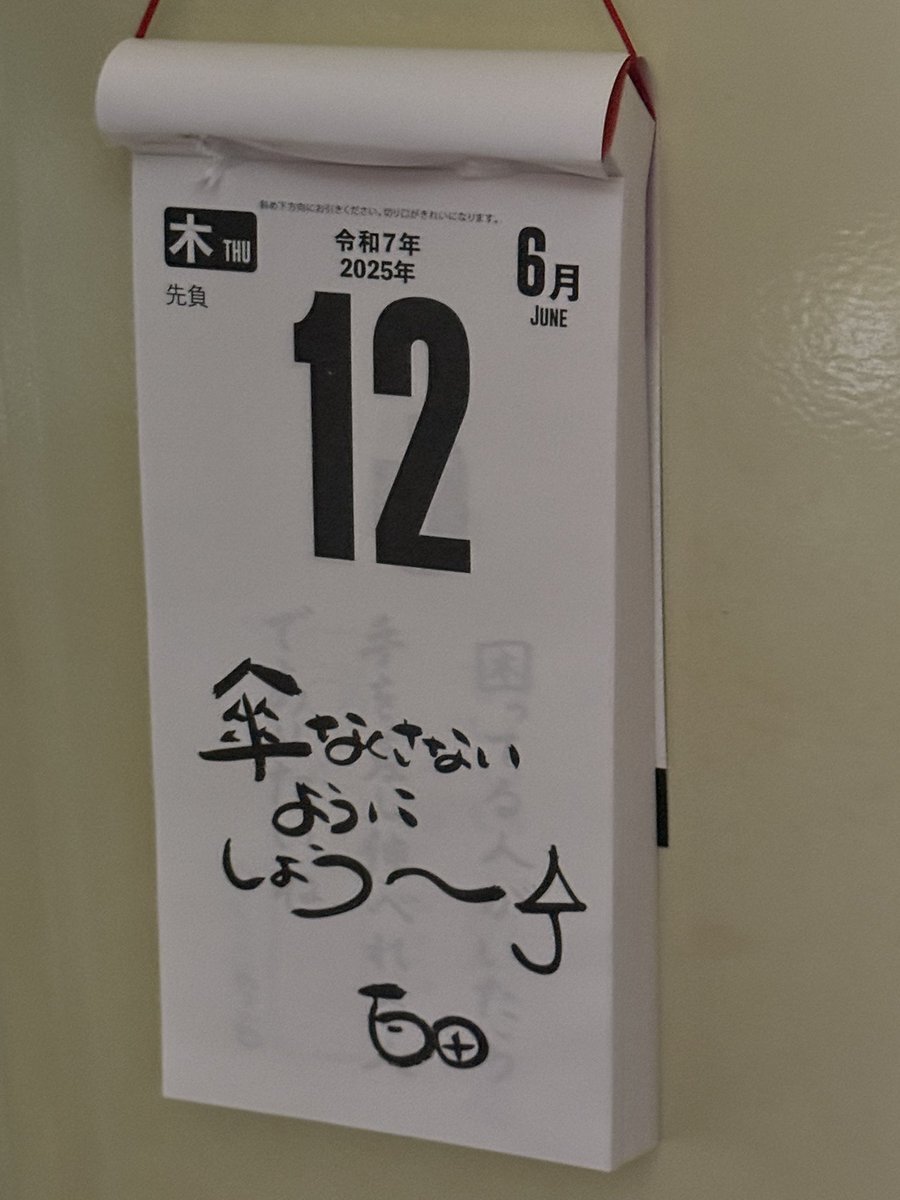 斜め下方向にお引きください。切り口がきれいになります。
木 THU
令和7年
6月
2025年
先負
JUNE
12
傘なくさない
ように
しよう〜
百田